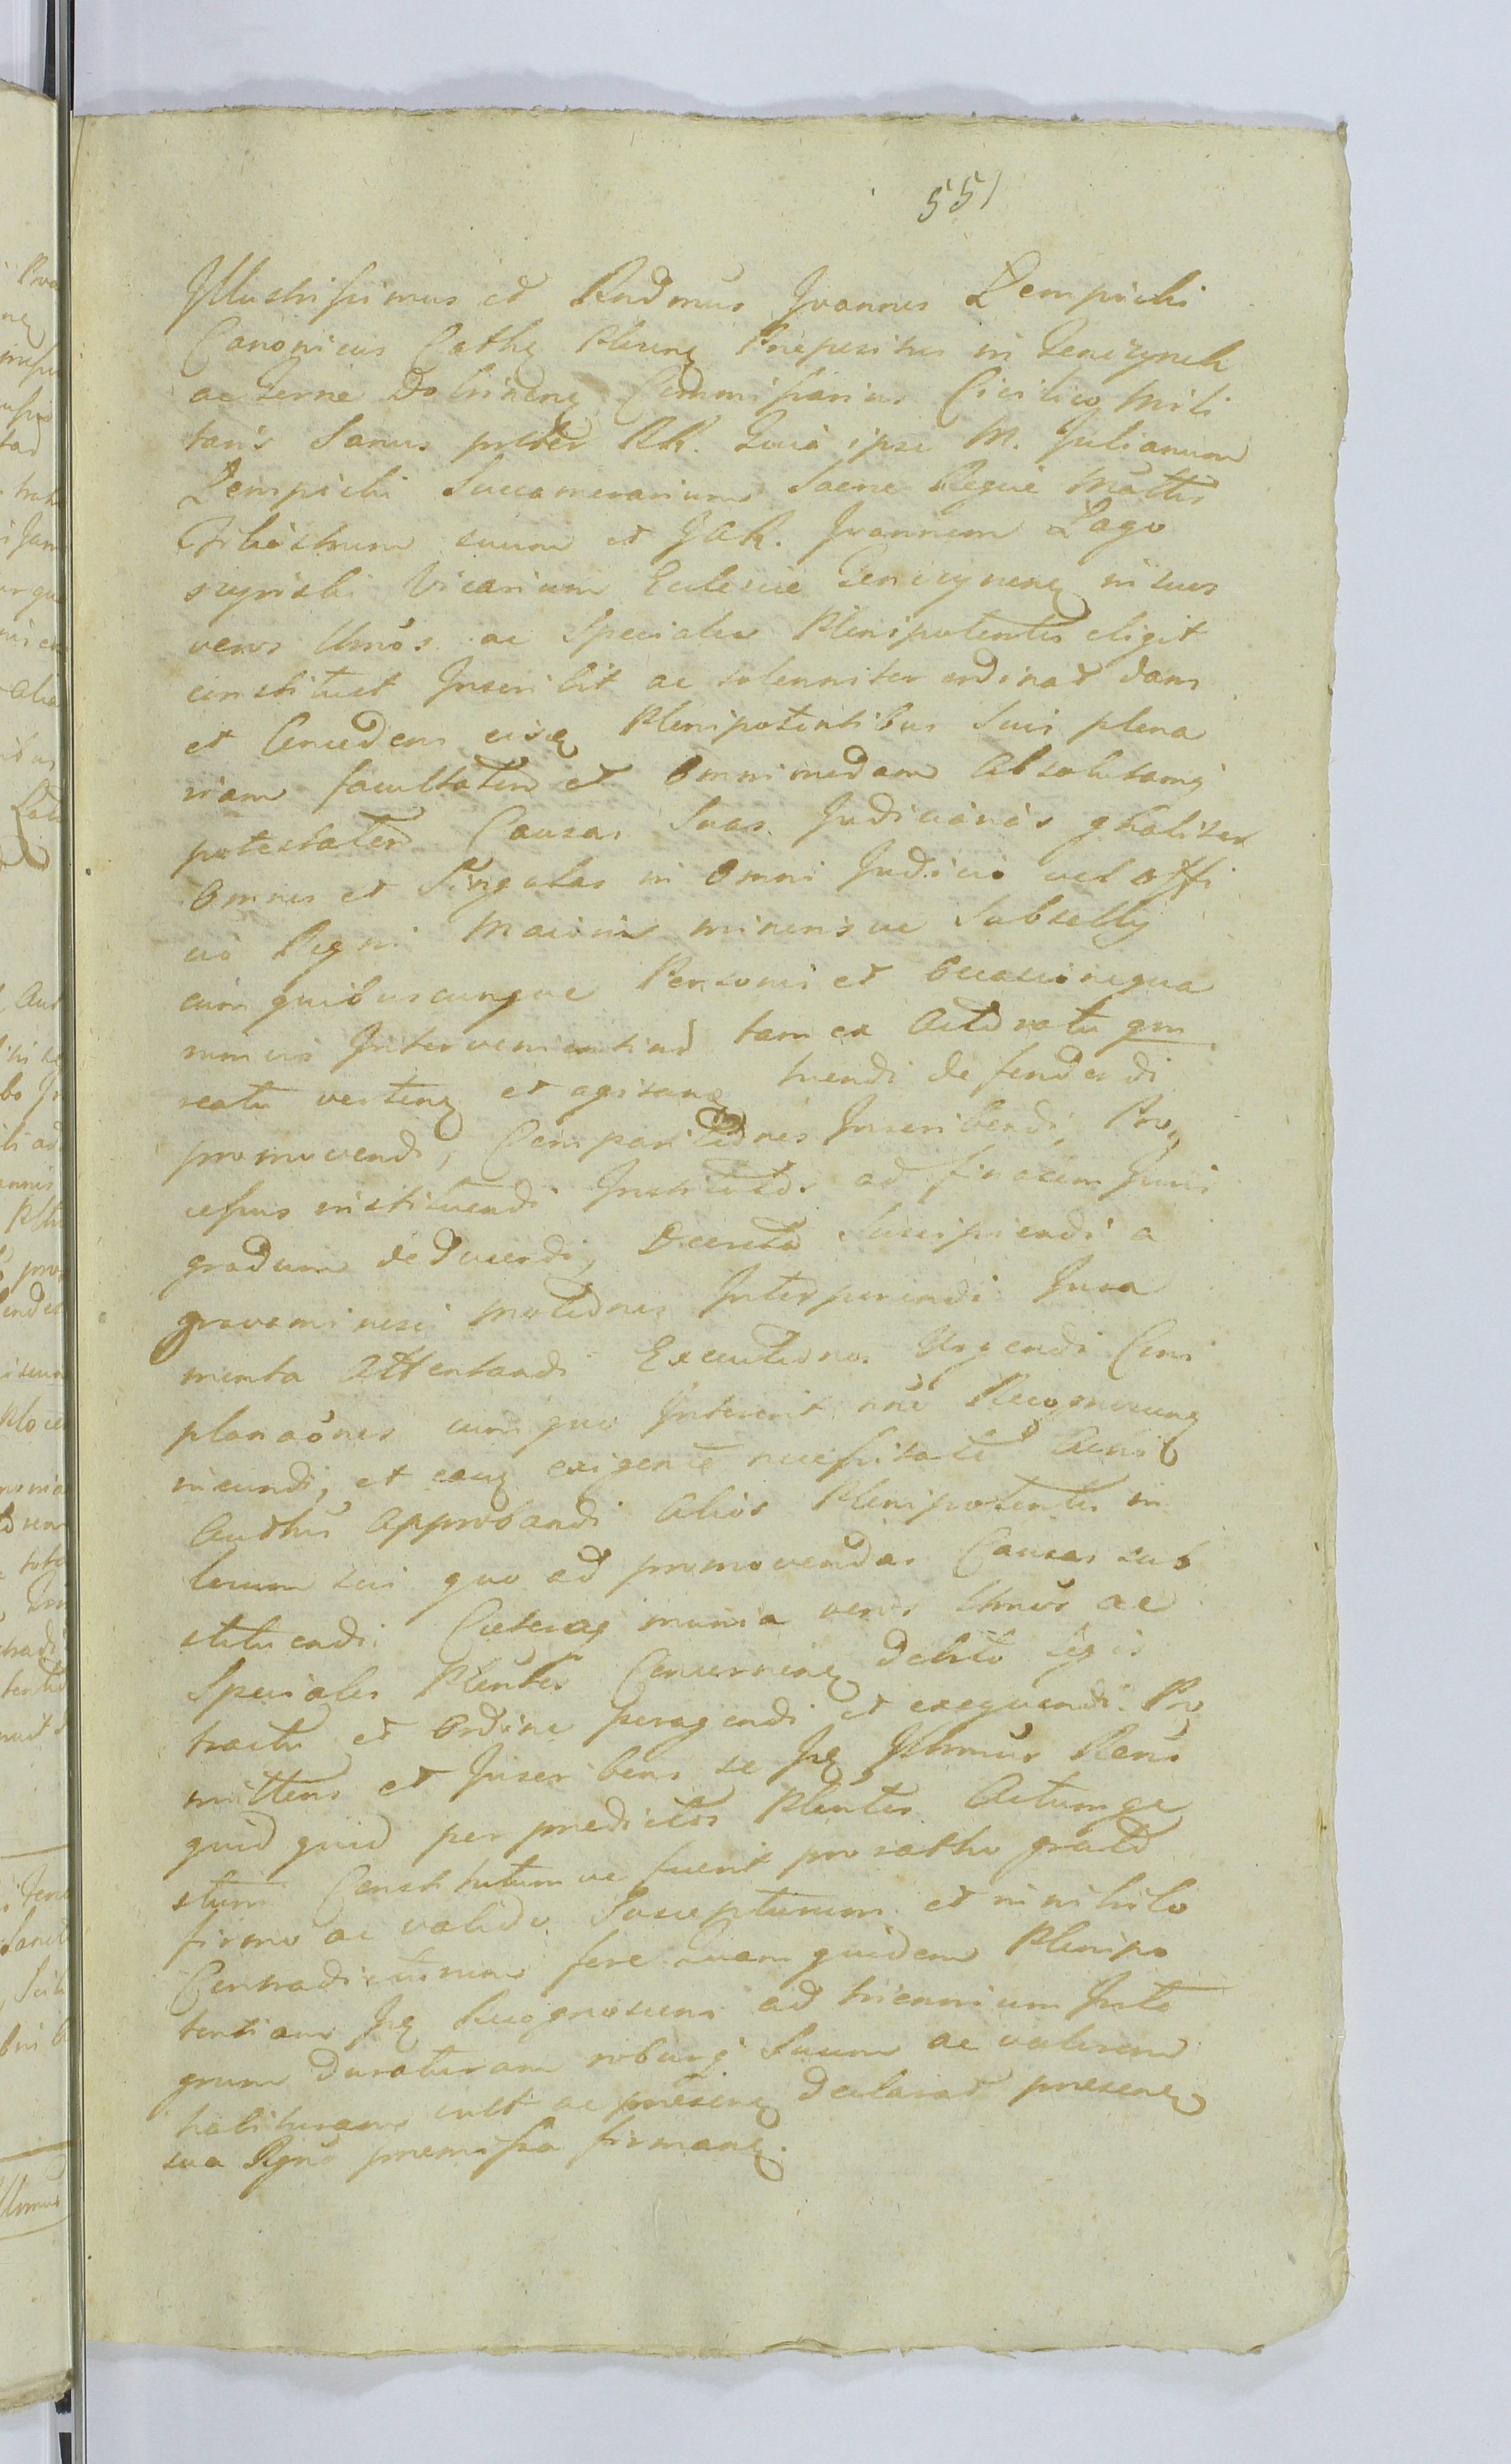 551
Illustrissimus et Rndmus Joannes Dempicki
Canonicus Cathe Plocene Praepositus in
ac Terrae Dobrinens Commissarius Civilico Mili
taris Sanus palder Rk. Quia ipse M. Julianum
Dempicki Succamerarium Sacrae Regiae Mattis
Fratrem suum et JAR. Joannem Lago
Vicarium Ecclesiae in suos
veros lttmos ac Speciales Plenipotentes eligit
constituit Inscribit ac solenniter ordinat dans
et Concedens eisq Plenipotentibus suis plena
riam facultatem et Omnimodam Absolutamq
potestatem Causas Suas Judiciarias gnaliter
Omnes et Singulas in Omni Judicio vel Offi
cio Regni Maioris minorisve Subsellij
cum quibuscunque Personis et Occasionequa
rumvis Intervenientias tam ex Actoratu qm
reatu verten et agitan tuendi defendendi
promovendi, Comparitiones Inscribendi, Pro,,
cessus instituendi Institutos ad finalem Juris
gradum deducendi, Decreta Suscipiendi a
gravaminesi motiones Interponendi Jura
menta Attentandi Executiones Urgendi Com
planaones cum quo Intererit nne Recognoscen
ineundi, et eaq exigente necessitate Actis
Authis Approbandi Alios Plenipotentes in
locum sui quo ad promovendas Causas sub
stituendi Caeteraq munia veros lttmos ac
Speciales Plentes Concernen debito legis
tractu et Ordine peragendi et exequendi. Pro,
mittens et Inscribens se Ipse Illmus Rens
quid quid per praedictos Plentes Actum ge
stum Constitutumve fuerit pro ratho grato
firmo ac valido Suscepturum et in nihilo
Contradicturum fore suam quidem Plenipo
tentiam Ipse Recognoscens ad triennium Inte
grum Duraturam roburq Suum ac valorem
habituram vult ac praesen declarat praesen
sua Rgne praemissa firman.